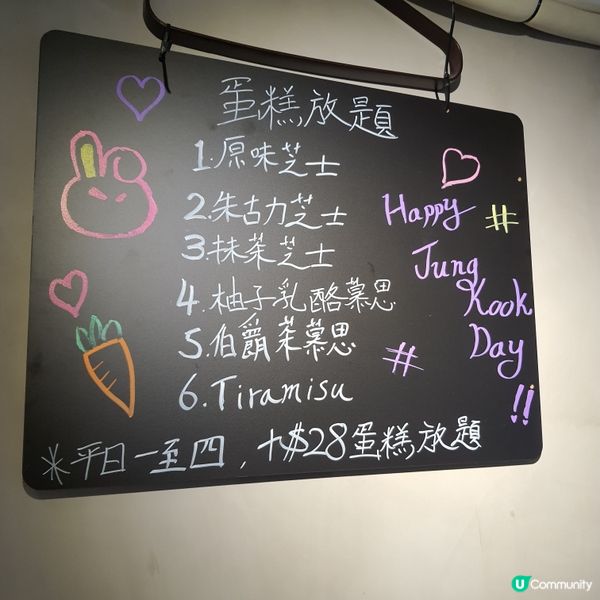 蛋糕放題
1.原味芝士
2.朱古力芝士
3.抹茶芝士
4.柚子乳酪慕思
5.伯爵茶慕思
6.Tiramisu
Happy #
Jung
Kook
# Day
!!
*平日一至四,+$28蛋糕放題
U Community